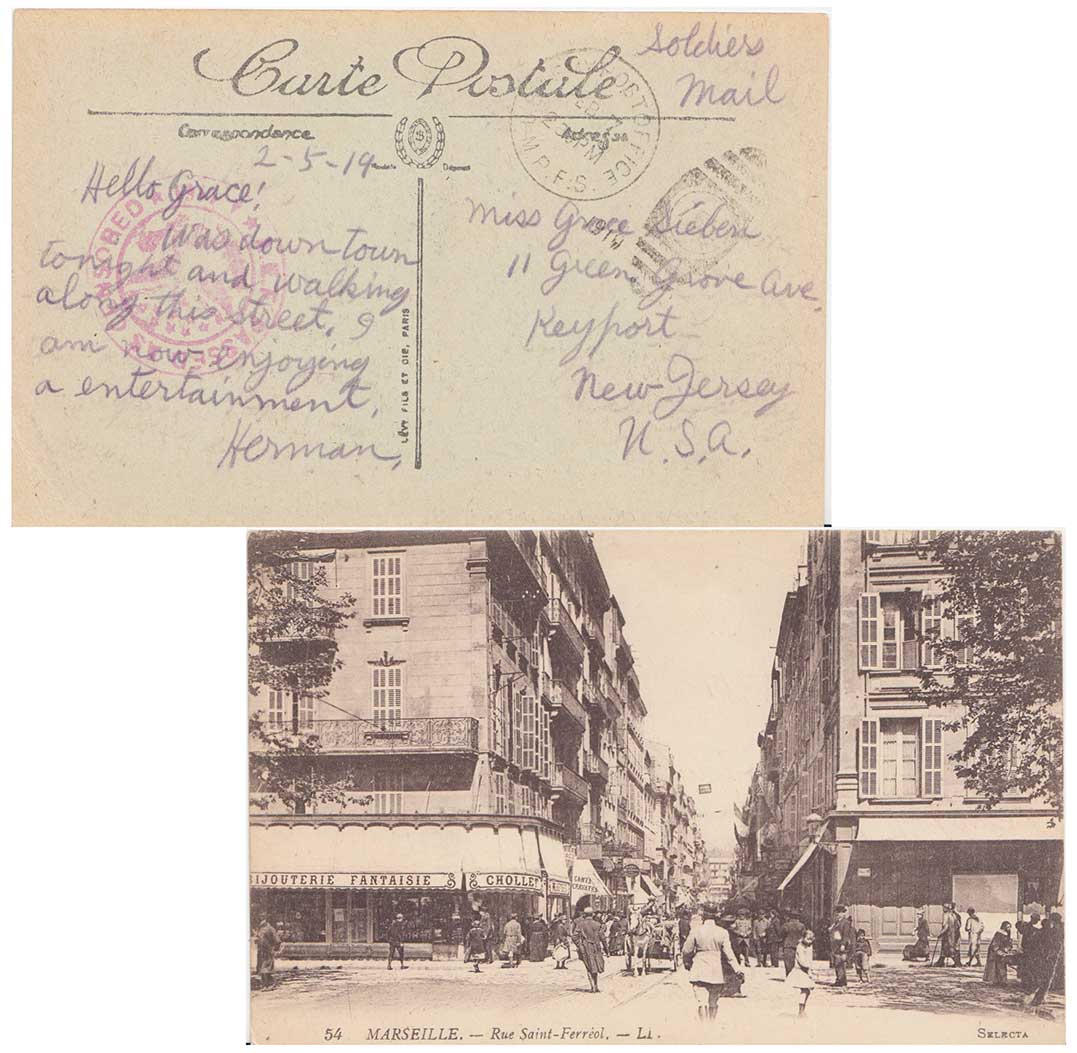 Carte Postale
Soldiers
Mail
POST OFFICE
M.P.E.S.
Correspondance
Adresse
2-5-19
Hello Grace!
Was down town
tonight and walking
along this street, I
am now enjoying
a entertainment,
Herman,
LÉVY FILS ET CIE, PARIS
Miss Grace Sieben
11 Green Grove Ave
Keyport
New Jersey
U.S.A.
IJOUTERIE FANTAISIE
CHOLLET
54 MARSEILLE. — Rue Saint-Ferréol. — LL.
SELECTA